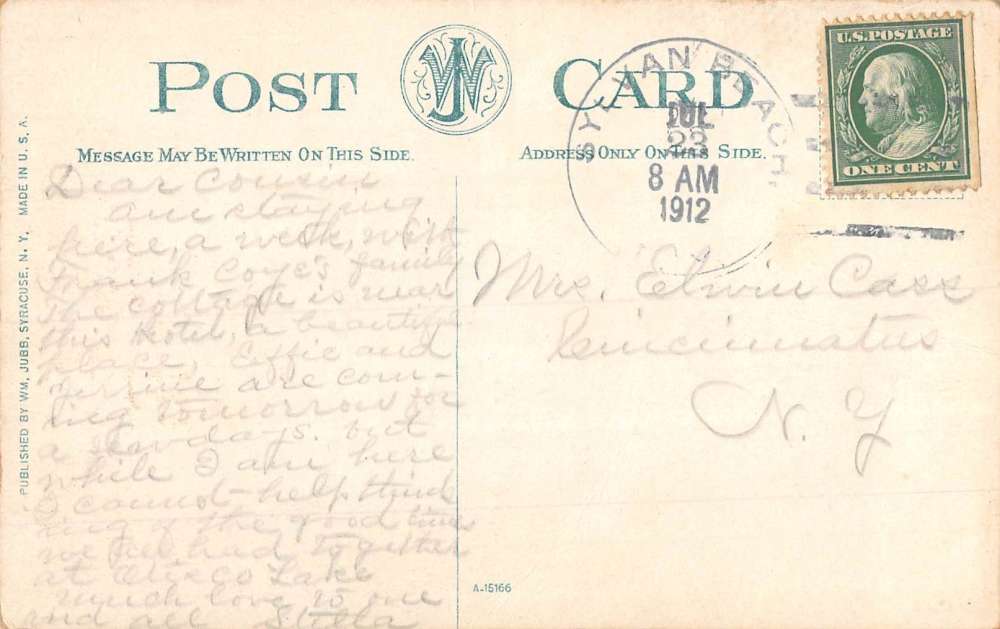 POST CARD
MESSAGE MAY BE WRITTEN ON THIS SIDE.
ADDRESS ONLY ON THIS SIDE.
SYLVAN BEACH,
JUL
23
8 AM
1912
U.S. POSTAGE
ONE CENT
PUBLISHED BY WM. JUBB, SYRACUSE, N. Y. MADE IN U. S. A.
Dear Cousin
am staying
here, a week, with
Frank Coye's family
The cottage is near
this Hotel, a beautiful
place, Effie and
are com-
ing tomorrow for
a few days. but
while I am here
I cannot help think
ing of the good times
we all had together
at Otisco Lake
much love to one
and all Stella
Mrs. Elwin Cass
Cincinnatus
N. Y
A-15166